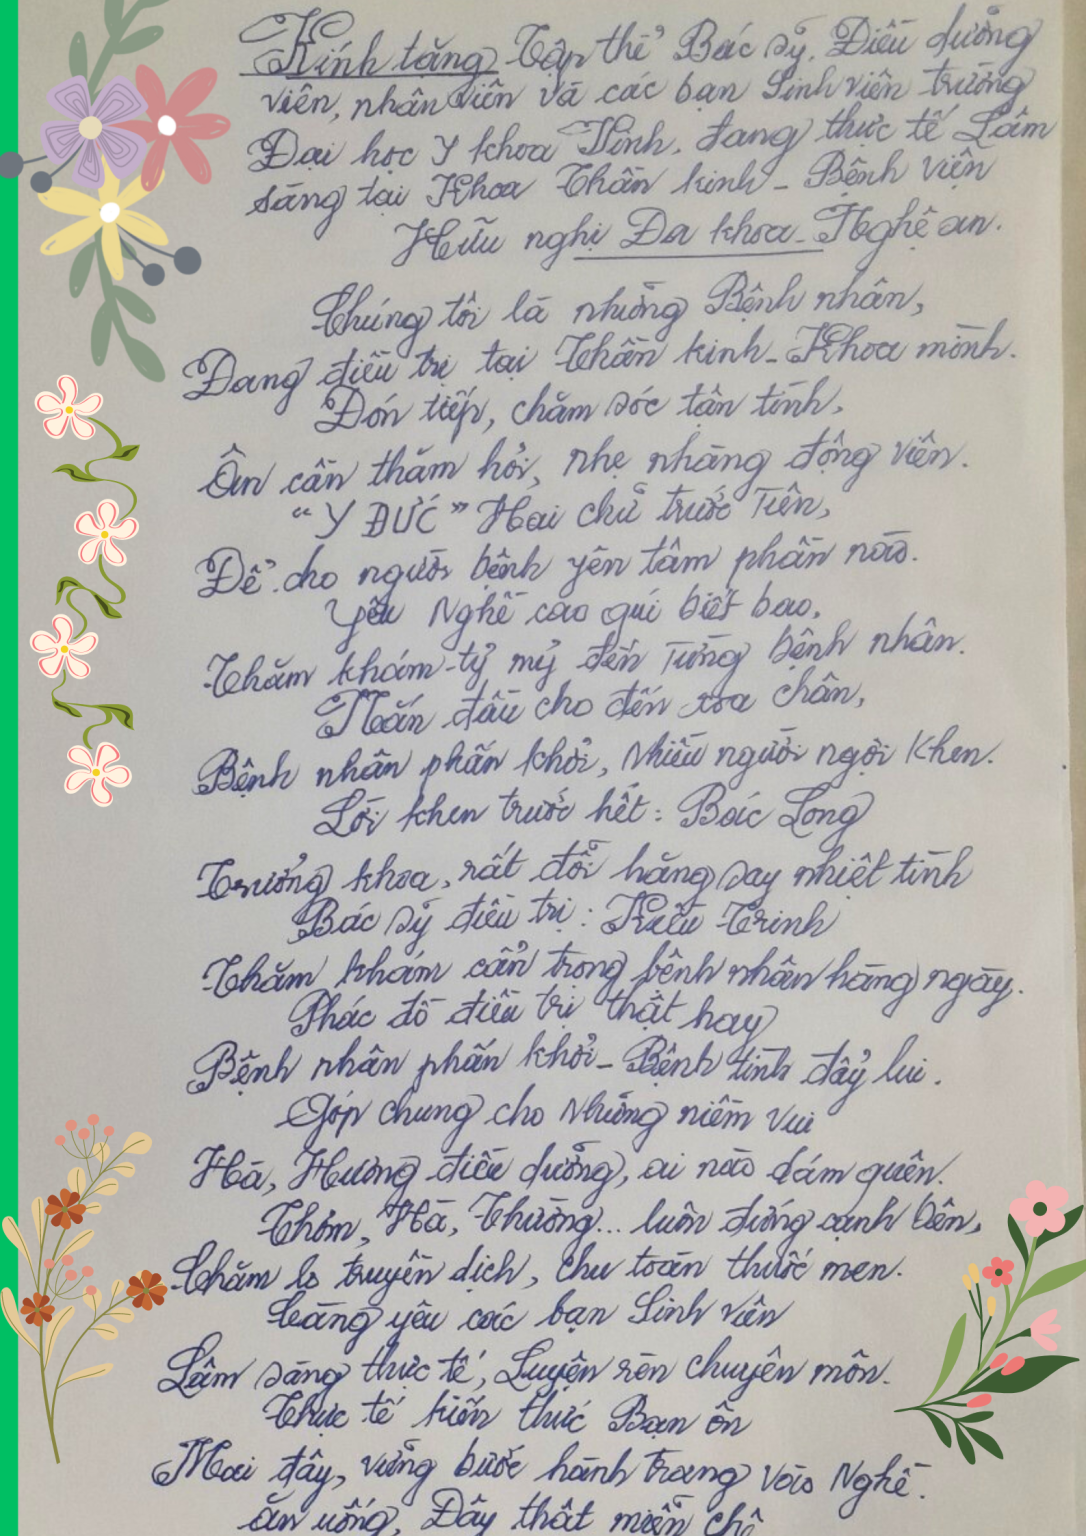 Kính tặng Tập thể Bác sỹ, Điều dưỡng
viên, nhân viên và các bạn Sinh viên trường
Đại học Y khoa Vinh, đang thực tế Lâm
sàng tại Khoa Thần kinh - Bệnh viện
Hữu nghị Đa khoa - Nghệ an.
Chúng tôi là những Bệnh nhân,
Đang điều trị tại Thần kinh - Khoa mình.
Đón tiếp, chăm sóc tận tình,
Ân cần thăm hỏi, nhẹ nhàng động viên.
"Y ĐỨC" Hai chữ trước Tiên,
Để cho người bệnh yên tâm phần nào.
Yêu Nghề cao quí biết bao,
Thăm khám tỷ mỷ đến Từng bệnh nhân.
Nắn đầu cho đến xoa chân,
Bệnh nhân phấn khởi, Nhiều người ngợi Khen.
Lời khen trước hết: Bác Long
Trưởng khoa, rất đỗi hăng say nhiệt tình
Bác sỹ điều trị: Kiều Trinh
Thăm khám cẩn trọng bệnh nhân hàng ngày.
Phác đồ điều trị thật hay
Bệnh nhân phấn khởi - Bệnh tình đẩy lui.
Góp chung cho Những niềm vui
Hà, Hương điều dưỡng, ai nào dám quên.
Thơm, Hà, Thường... luôn đứng cạnh bên,
Chăm lo truyền dịch, Chu toàn thuốc men.
Càng yêu các bạn Sinh viên
Lâm sàng thực tế, Luyện rèn chuyên môn.
Thực tế kiến thức Bạn ôn
Mai đây, vững bước hành trang vào Nghề.
ăn uống, Đây thật miễn chê